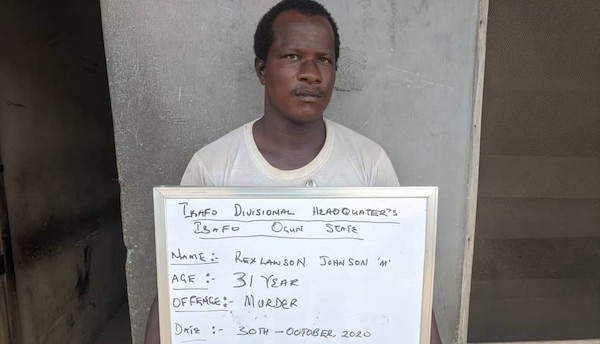 IBAFO DIVISIONAL HEADQUATER'S
IBAFO OGUN STATE
NAME:- REXLAWSON JOHNSON 'M'
AGE :- 31 YEAR
OFFENCE:- MURDER
DATE :- 30TH - OCTOBER, 2020